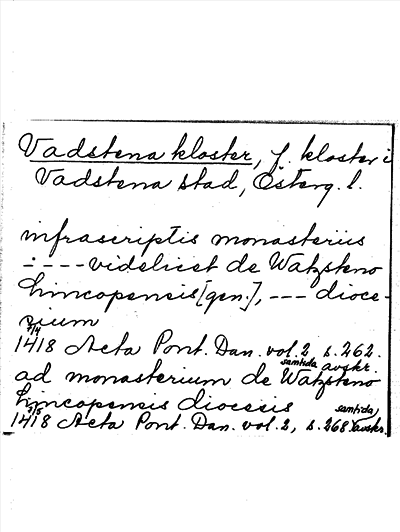 Vadstena kloster, f. kloster i
Vadstena stad, Österg. l.
infrascriptis monasteriis
: - - - - videlicet de Watzsteno
Lincopensis [gen.], - - - dioce-
sium
7/4 1418 Acta Pont. Dan. vol. 2 s. 262. samtida avskr.
ad monasterium de Watzsteno
Lincopensis diocesis
1418 Acta Pont. Dan. vol. 2, s. 268 samtida avskr.